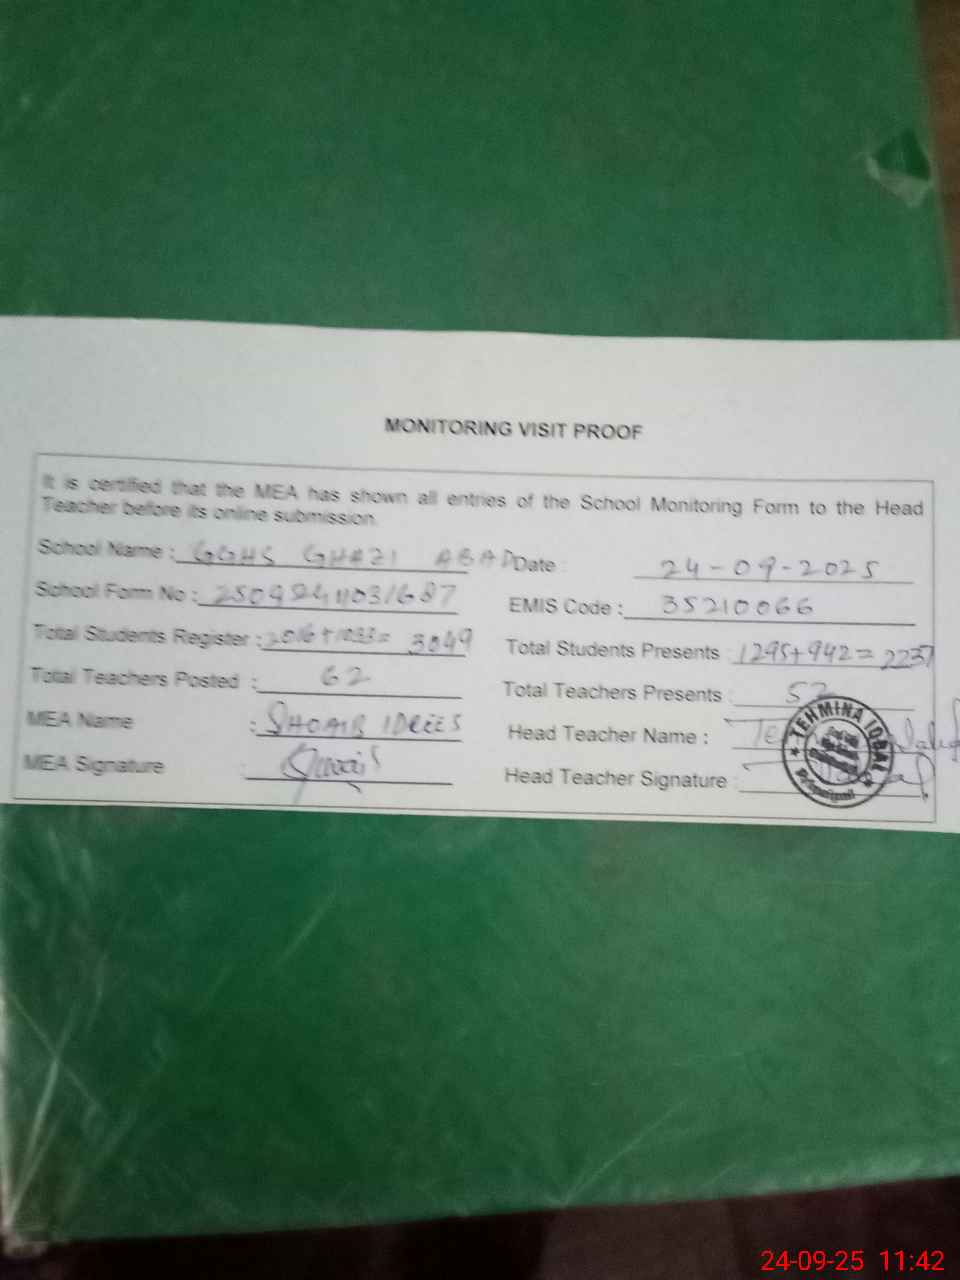 MONITORING VISIT PROOF
It is certified that the MEA has shown all entries of the School Monitoring Form to the Head
Teacher before its online submission.
School Name : GGHS GHAZI ABAD Date : 24-09-2025
School Form No : EMIS Code : 35210066
Total Students Register : 2016+1033= 3049 Total Students Presents : 1295+942=2237
Total Teachers Posted : 62 Total Teachers Presents : 52
MEA Name : SHOAIB IDREES Head Teacher Name :
MEA Signature : Head Teacher Signature :
TEHMINA IQBAL
Principal
24-09-25 11:42